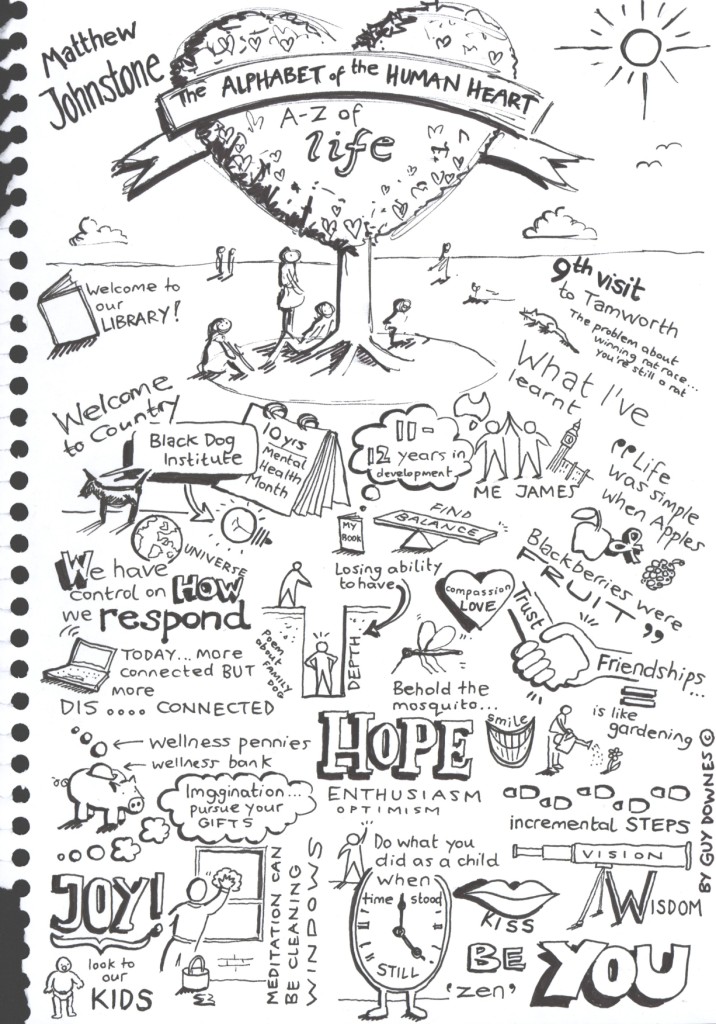 Matthew
Johnstone
The ALPHABET of the HUMAN HEART
A-Z of
life
Welcome to
our
LIBRARY!
9th visit
to Tamworth
The problem about
winning rat race...
you're still a rat
What I've
learnt
Welcome
to Country
Black Dog
Institute
10 yrs
Mental
Health
Month
11-
12 years in
development
ME JAMES
"Life
was simple
when Apples
Blackberries were
FRUIT"
MY
BOOK
FIND
BALANCE
UNIVERSE
We have
control on HOW
we respond
Losing ability
to have
DEPTH
Poem
about
FAMILY
DOG
compassion
LOVE
Trust
Friendships...
=
is like
gardening
TODAY... more
connected BUT
more
DIS .... CONNECTED
Behold the
mosquito...
wellness pennies
wellness bank
HOPE
ENTHUSIASM
OPTIMISM
smile
Imagination...
pursue your
GIFTS
incremental STEPS
BY GUY DOWNES ©
JOY!
look to
our
KIDS
MEDITATION CAN
BE CLEANING
WINDOWS
Do what you
did as a child
when
time stood
STILL
'zen'
KISS
VISION
WISDOM
BE YOU